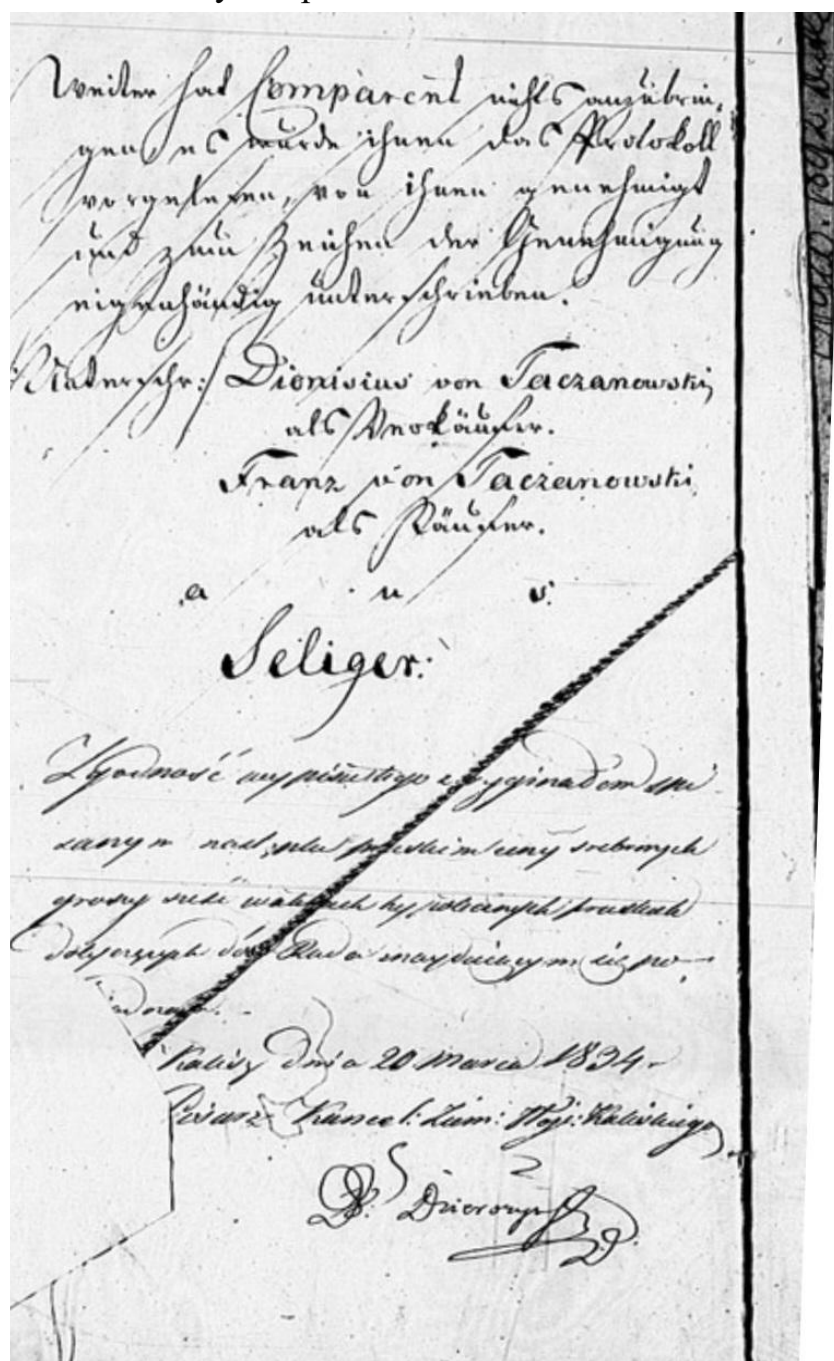 Weiter hat Comparent nichts anzubrin-
gen es wurde ihnen das Protokoll
vorgelesen, von ihnen genehmigt
und zum Zeichen der Genehmigung
eigenhändig unterschrieben.
Unterschr: Dionisius von Taczanowski
als Verkäufer.
Franz von Taczanowski
als Käufer.
a u s.
Seliger.
Zgodność wypisu tego z oryginałem spi-
sanym na stęplu pruskim ceny srebrnych
groszy sześć w aktach hypotecznych pruskich
dotyczących dóbr znaydującym się po-
Kalisz dnia 20 Marca 1834
Pisarz Kancel: Ziem: Woj: Kaliskiego